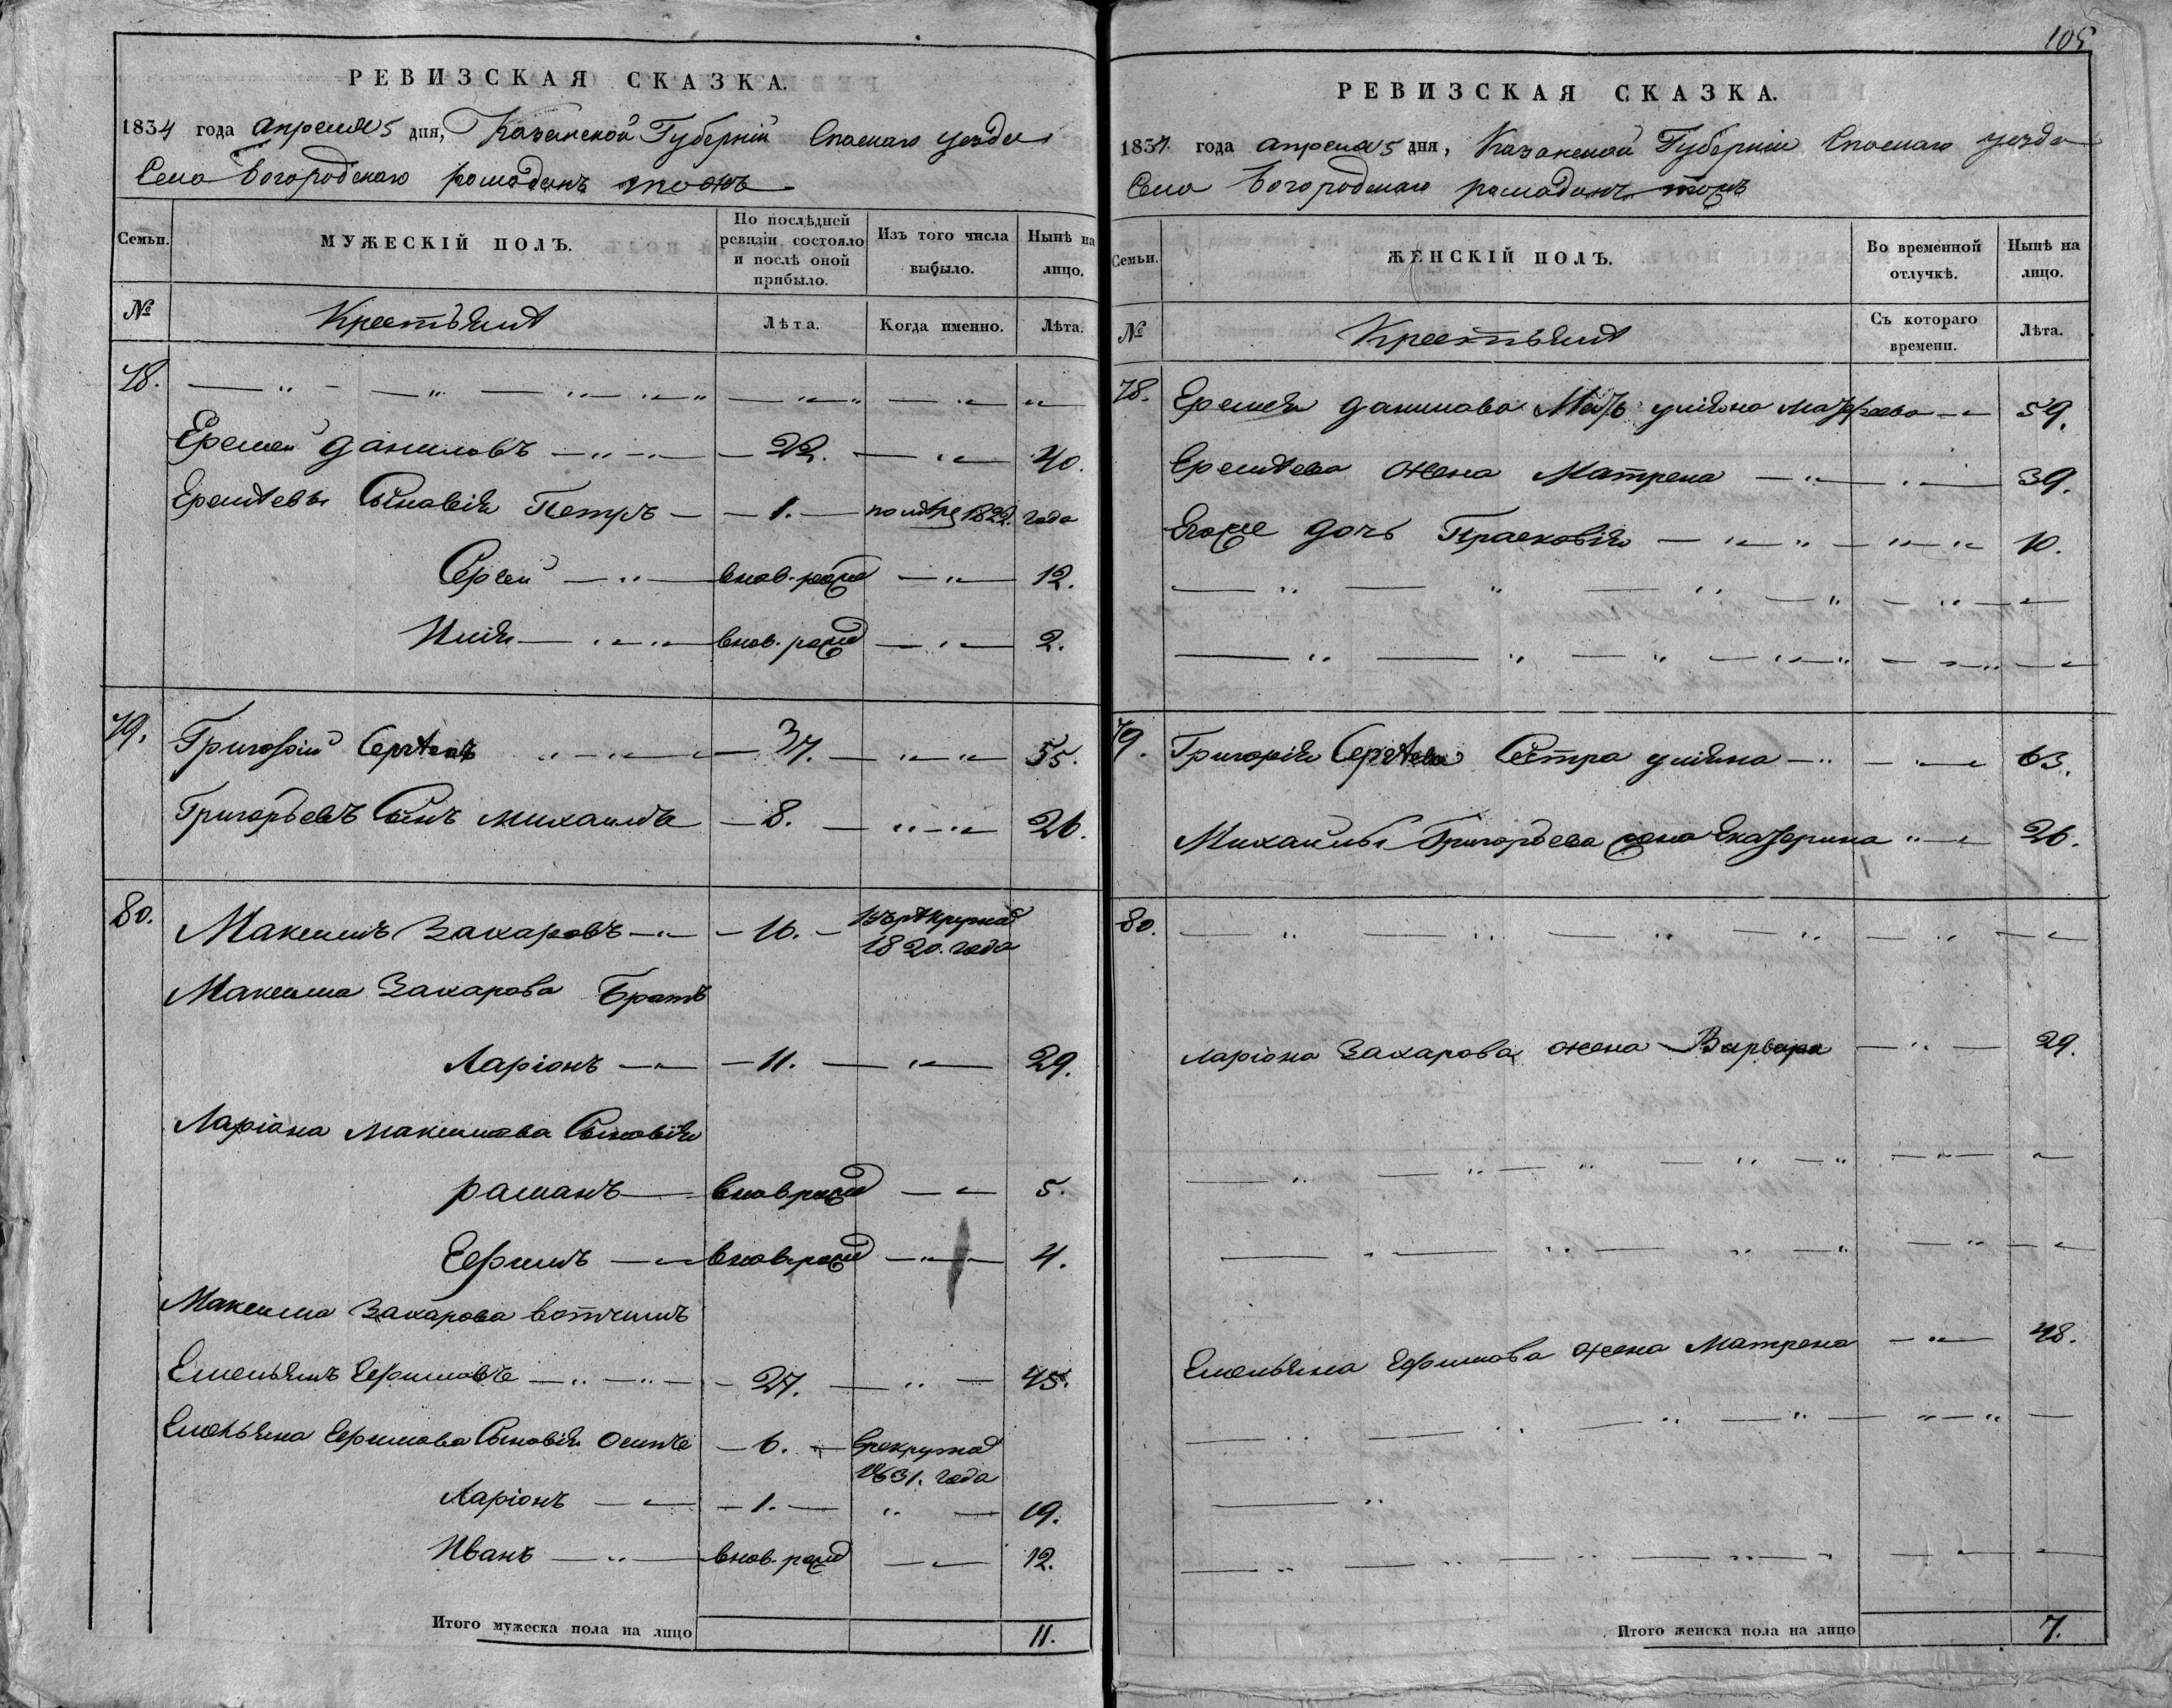 РЕВИЗСКАЯ СКАЗКА.
1834 года апреля 5 дня, Казанской Губернiи Спаскаго уезда
Села Богородскаго рамаданъ тожъ
Семьи.
МУЖЕСКІЙ ПОЛЪ.
По послѣдней ревизіи состояло и послѣ оной прибыло.
Изъ того числа выбыло.
Нынѣ на лицо.
№
Крестьянѣ
Лѣта.
Когда именно.
Лѣта.
78.
Еремей Даниловъ 22. 40.
Еремѣевы Сыновiя Петръ 1. помѣре 1822. года
Сергей внов. рожд 12.
Илiя внов. рожд 2.
79. Григорiй Сергѣевъ 37. 55.
Григорьевъ Сынъ михаилъ 8. 26.
80. Максимъ Захаровъ 16. 1820. года
Максима Захарова Братъ
Ларiонъ 11. 29.
Ларiона максимова Сыновiя
раманъ внов рожд 5.
Ефимъ внов рожд 4.
Максима Захарова вотчимъ
Емельянъ Ефимовъ 27. 45.
Емельяна Ефимова Сыновiя Осипъ 6. в рекрута 1831. года
Ларiонъ 1. 19.
Иванъ внов. рожд 12.
Итого мужеска пола на лицо 11.
105
РЕВИЗСКАЯ СКАЗКА.
1834 года апреля 5 дня, Казанской Губернiи Спаскаго уезда
Села Богородскаго рамаданъ тожъ
Семьи.
ЖЕНСКІЙ ПОЛЪ.
Во временной отлучкѣ.
Нынѣ на лицо.
№
Крестьянѣ
Съ котораго времени.
Лѣта.
78. Еремея Данилова Мать улiяна 59.
Еремѣева жена Матрена 39.
Егоже дочь Прасковiя 10.
79. Григорiя Сергѣева Сестра улiяна 63.
Михайлы Григорьева жена Екатерина 26.
80.
Ларiона Захарова жена Варвара 29.
Емельяна Ефимова жена Матрена 48.
Итого женска пола на лицо 7.